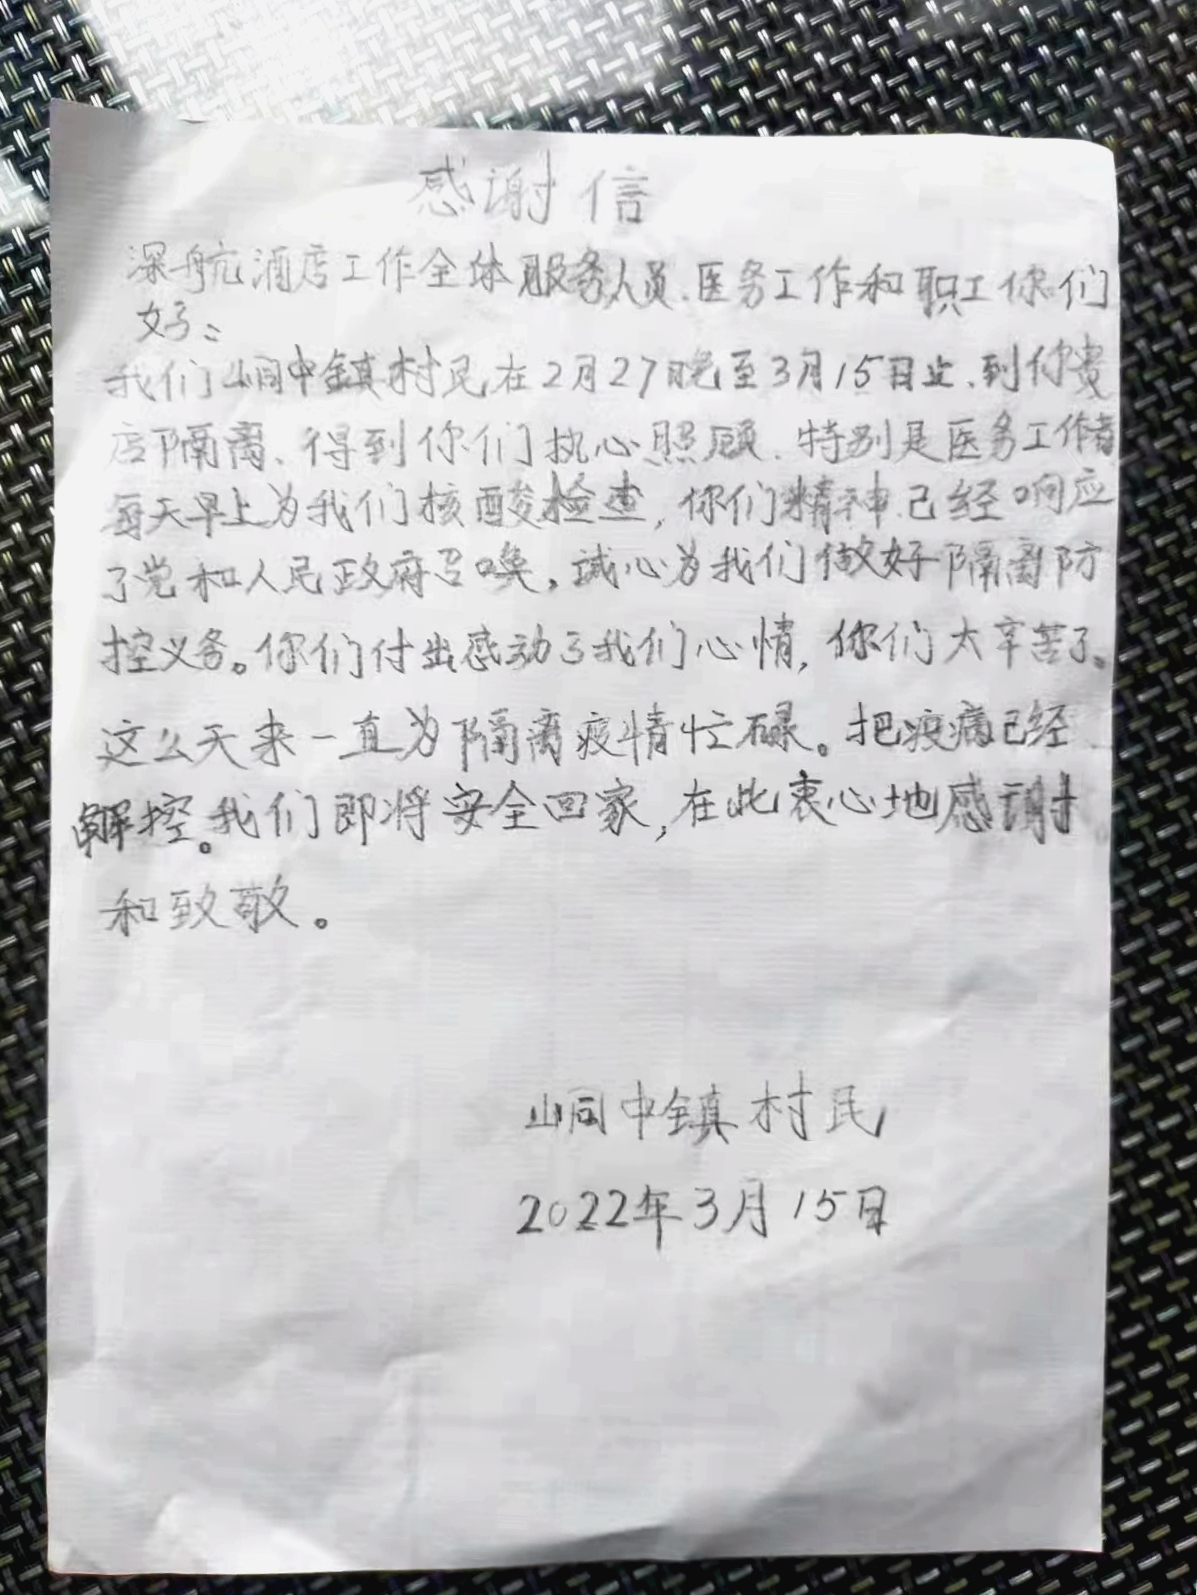 感谢信
深航酒店工作全体服务人员、医务工作和职工你们
好：
我们峒中镇村民在2月27日晚至3月15日止、到你贵
店隔离、得到你们执心照顾、特别是医务工作者
每天早上为我们核酸检查，你们精神已经响应
了党和人民政府召唤，诚心为我们做好隔离防
控义务。你们付出感动了我们心情，你们太辛苦了。
这么天来一直为隔离疫情忙碌。把疫病已经
解控。我们即将安全回家，在此衷心地感谢
和致敬。
峒中镇村民
2022年3月15日